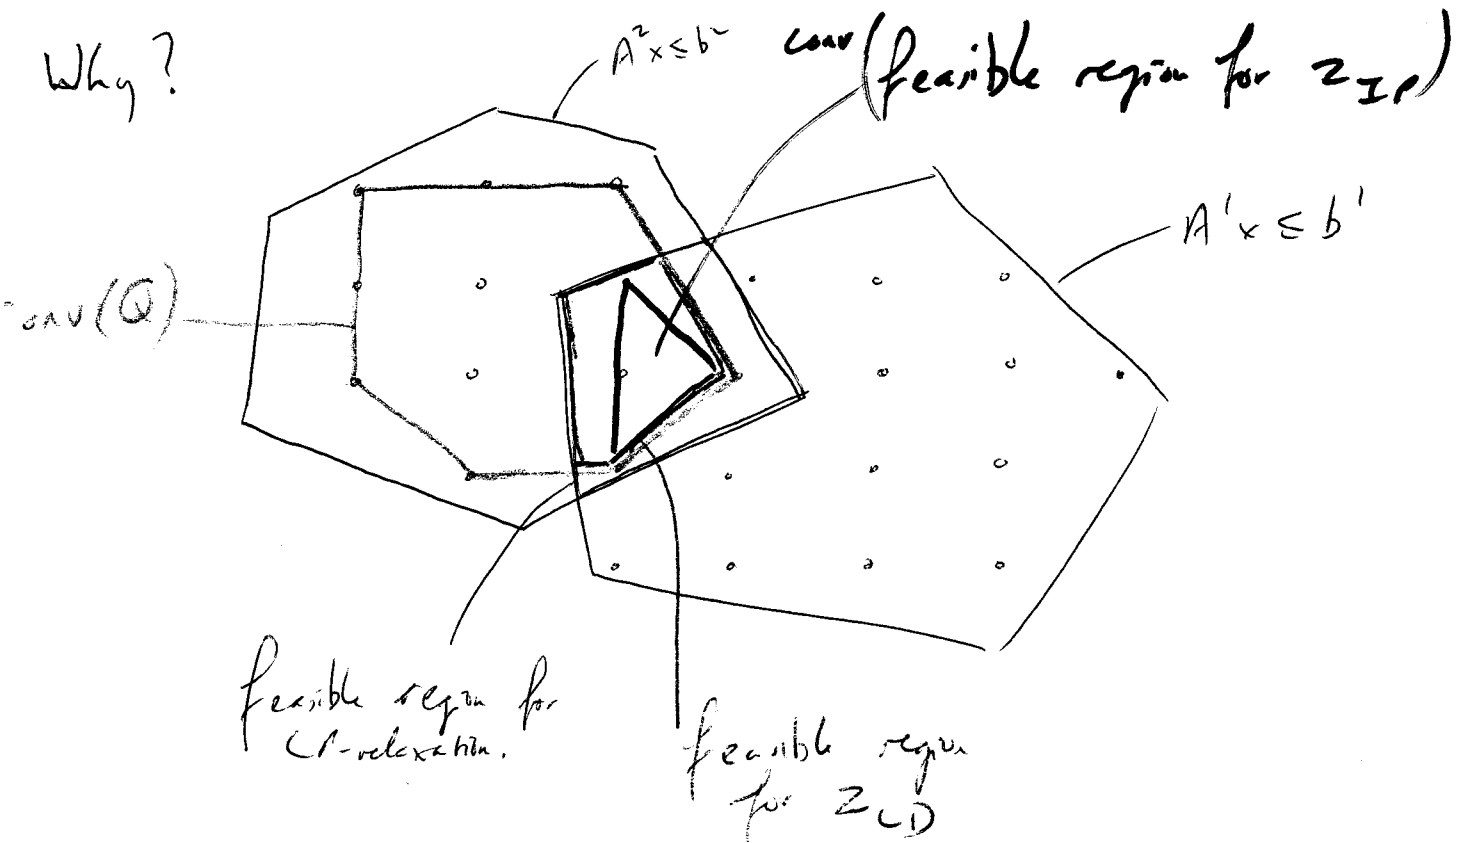 Why?
A²x ≤ b²
conv(feasible region for Z_IP)
A'x ≤ b'
conv(Q)
feasible region for
LP-relaxation.
feasible region
for Z_LD